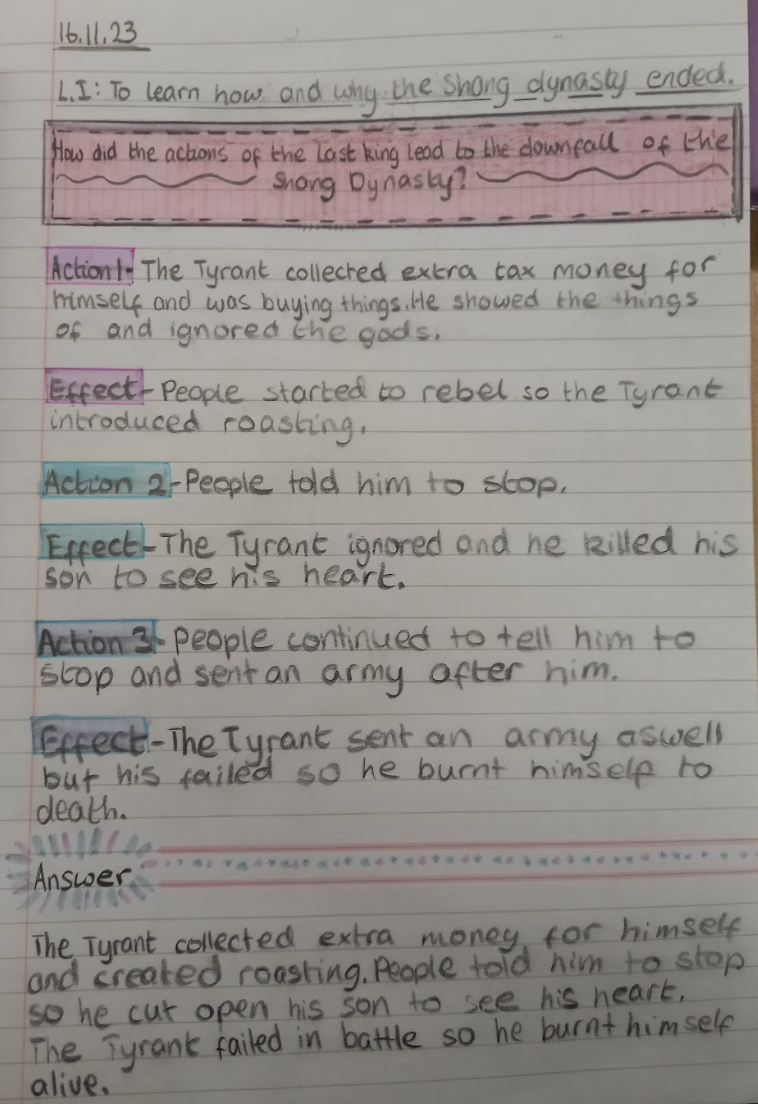 16.11.23
L.I: To learn how and why the Shang dynasty ended.
How did the actions of the last king lead to the downfall of the
Shang Dynasty?
Action 1- The Tyrant collected extra tax money for
himself and was buying things. He showed the things
of and ignored the gods.
Effect- People started to rebel so the Tyrant
introduced roasting.
Action 2-People told him to stop.
Effect-The Tyrant ignored and he killed his
son to see his heart.
Action 3- People continued to tell him to
stop and sent an army after him.
Effect-The Tyrant sent an army aswell
but his failed so he burnt himself to
death.
Answer
The Tyrant collected extra money for himself
and created roasting. People told him to stop
so he cut open his son to see his heart.
The Tyrant failed in battle so he burnt himself
alive.